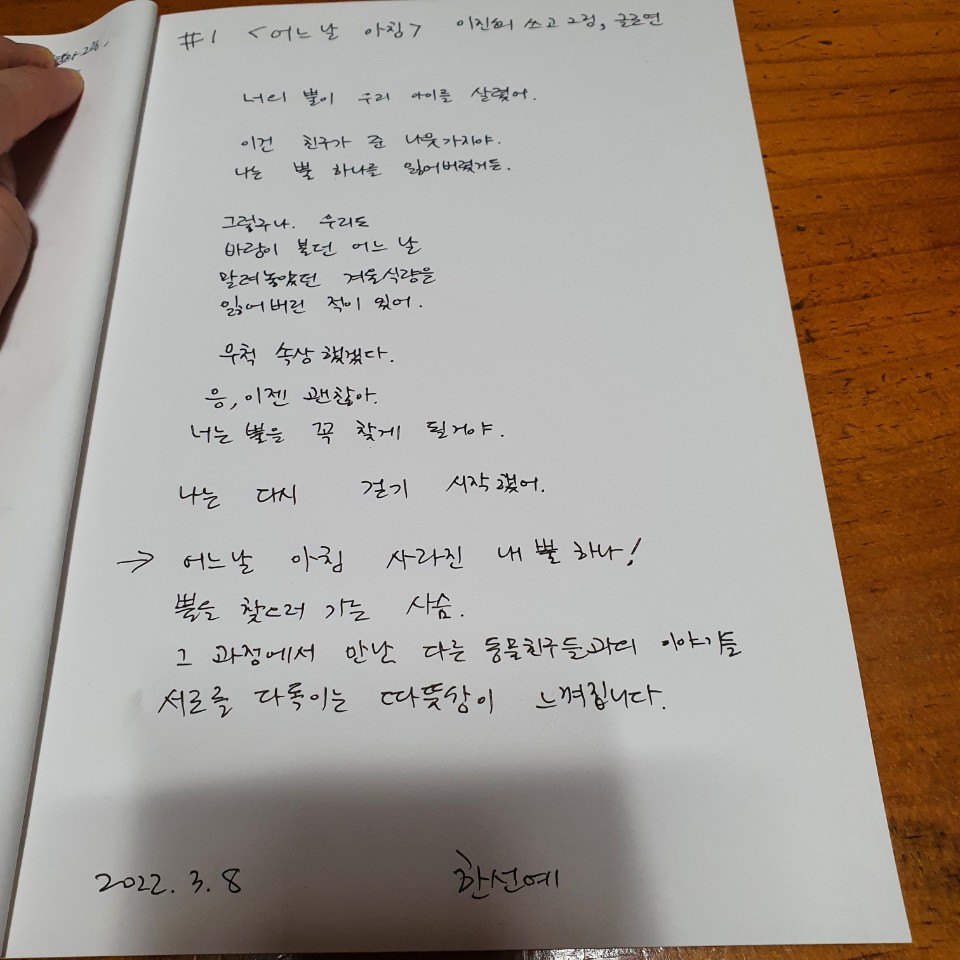 #1 <어느 날 아침> 이진희 쓰고 그림, 글로연
너의 뿔이 우리 아이를 살렸어.
이건 친구가 준 나뭇가지야.
나는 뿔 하나를 잃어버렸거든.
그렇구나. 우리도
바람이 불던 어느 날
말려놓았던 겨울식량을
잃어버린 적이 있어.
무척 속상했겠다.
응, 이젠 괜찮아.
너는 뿔을 꼭 찾게 될거야.
나는 다시 걷기 시작했어.
→ 어느날 아침 사라진 내 뿔 하나!
뿔을 찾으러 가는 사슴.
그 과정에서 만난 다른 동물친구들과의 이야기들
서로를 다독이는 따뜻함이 느껴집니다.
2022. 3. 8 한선예